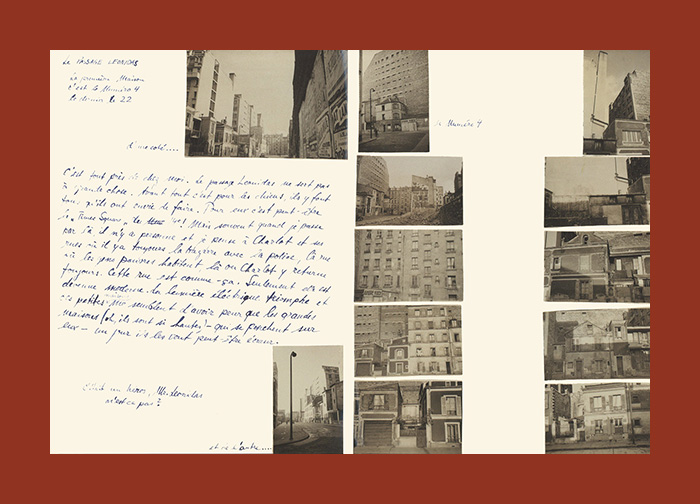 Le PASSAGE LEONIDAS
La première Maison
c'est le Numéro 4
le dernier le 22
d'un coté....
Le Numéro 4
C'est tout près de chez moi. Le passage Leonidas ne sert pas
à grande chose. Avant tout c'est pour les chiens, ils y font
tout qu'ils ont envie de faire. Pour eux c'est peut-être
le „Times Square", Mais souvent quand je passe
par là il n'y a personne et je pense à Charlot et ses
rues où il y a toujours la bagarre avec la police, la rue
où les gens pauvres habitent là où Charlot y retourne
toujours. Cette rue est comme-ça. Seulement elle est
devenue moderne. La lumière éléctrique triomphe et
les petites semblent d'avoir peur que les grandes
maisons (oh, ils sont si hautes) – qui se penchent sur
eux – un jour ils les vont peut-être écraser.
C'était un héros, Mr. Leonidas
n'est-ce pas?
et de l'autre....